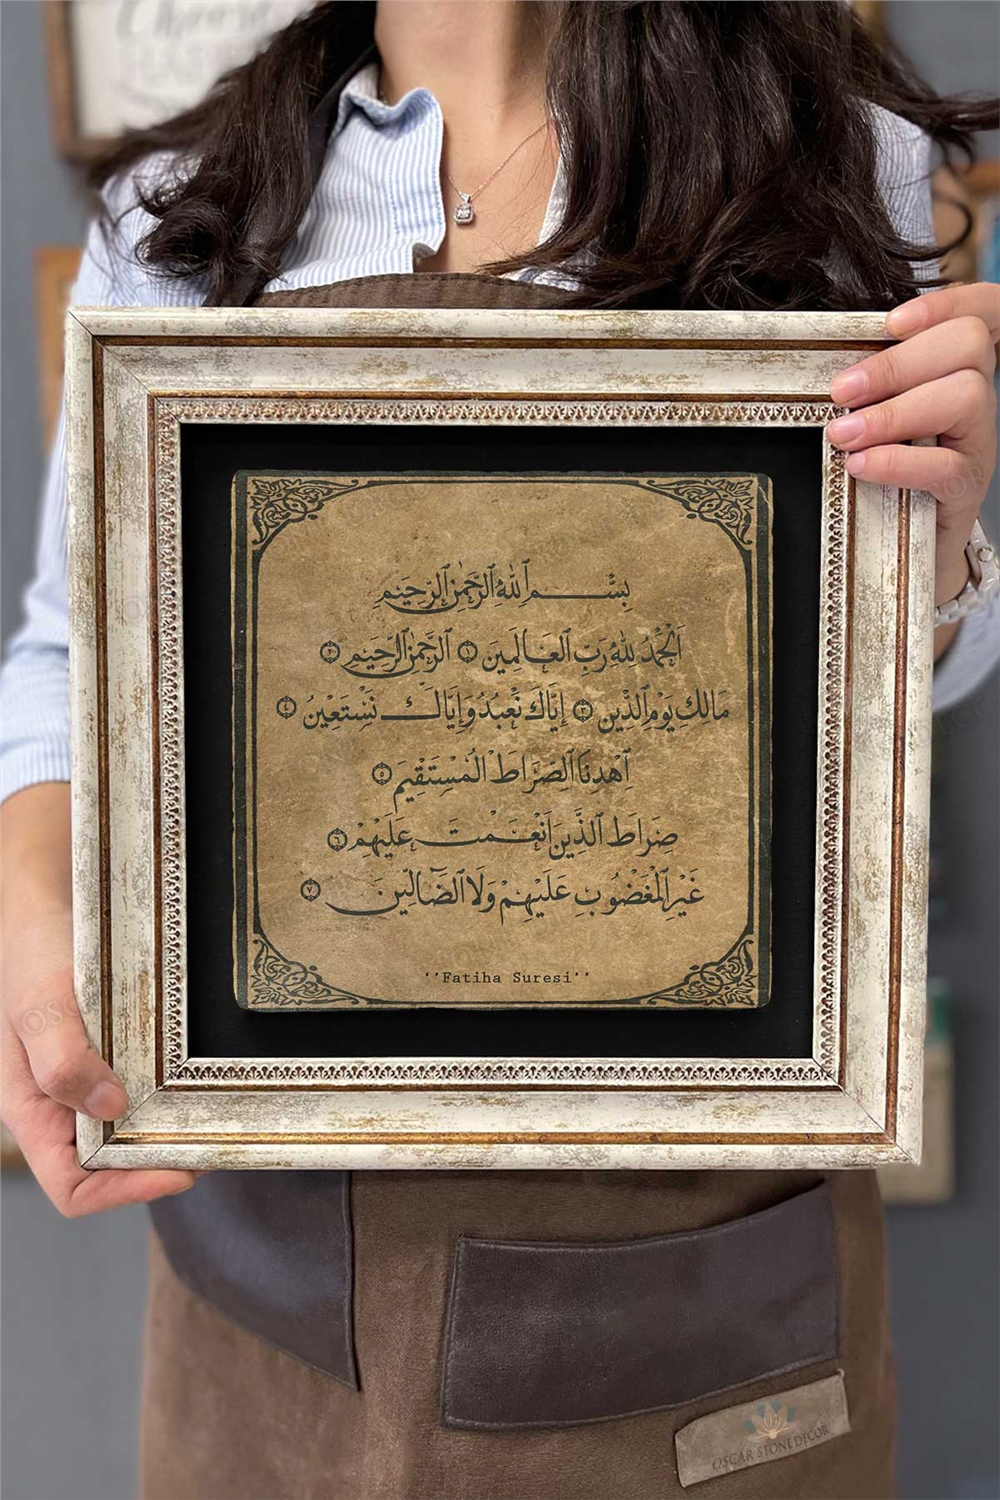 بِسْمِ ٱللّٰهِ ٱلرَّحْمٰنِ ٱلرَّحِيمِ
اَلْحَمْدُ لِلّٰهِ رَبِّ ٱلْعَالَمِينَ ١ ٱلرَّحْمٰنِ ٱلرَّحِيمِ ٢
مَالِكِ يَوْمِ ٱلدِّينِ ٣ إِيَّاكَ نَعْبُدُ وَإِيَّاكَ نَسْتَعِينُ ٤
ٱهْدِنَا ٱلصِّرَاطَ الْمُسْتَقِيمَ ٥
صِرَاطَ ٱلَّذِينَ أَنْعَمْتَ عَلَيْهِمْ ٦
غَيْرِ ٱلْمَغْضُوبِ عَلَيْهِمْ وَلَا ٱلضَّالِّينَ ٧
‘‘Fatiha Suresi’’
OSCAR STONE DECOR